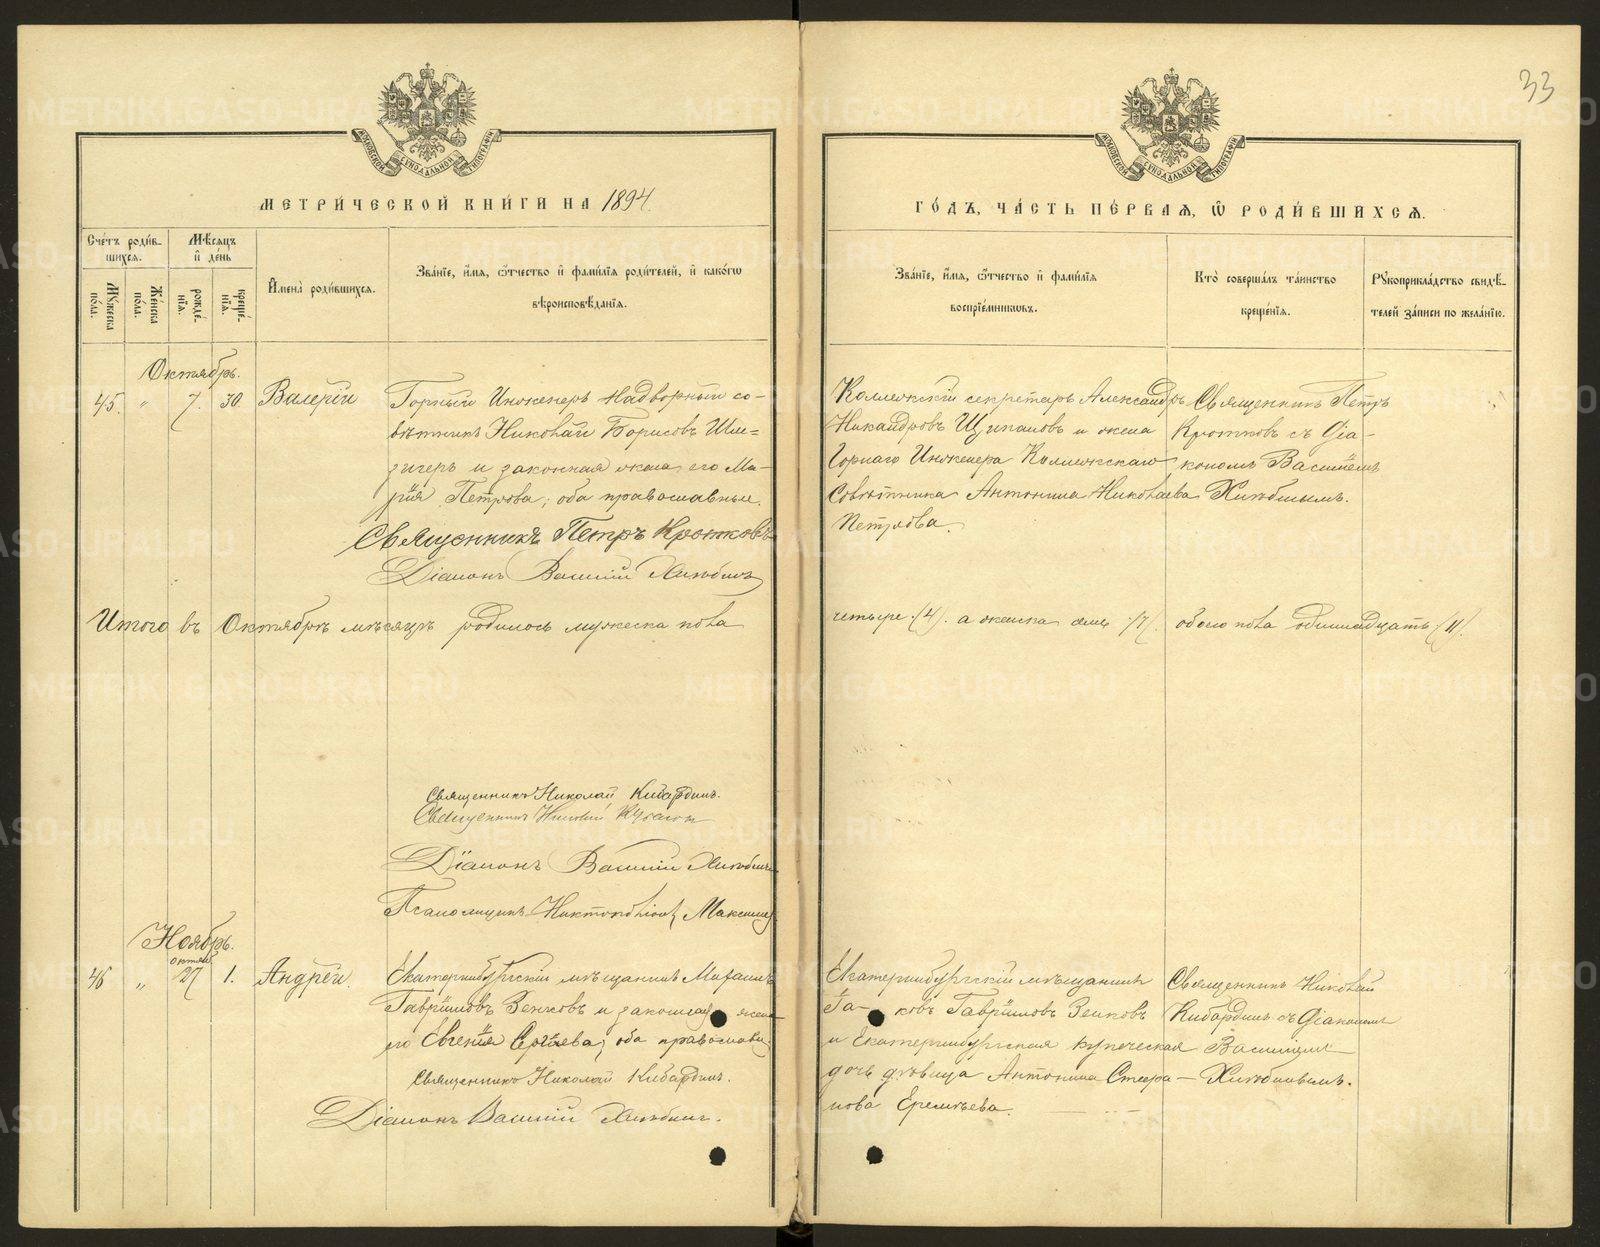 33
МОСКОВСКОЙ СѴНОДАЛЬНОЙ ТИПОГРАФІИ
МОСКОВСКОЙ СѴНОДАЛЬНОЙ ТИПОГРАФІИ
МЕТРИ́ЧЕСКОЙ КНИ́ГИ НА 1894.
ГО́ДЪ, ЧА́СТЬ ПЕ́РВАЯ, Ѽ РОДИ́ВШИХСЯ.
Сче́тъ роди́в-
шихся.
Мѣ́сяцъ
и҆ де́нь
Му́жеска
по́ла.
Же́нска
по́ла.
рожде́-
нїя.
креще́-
нїя.
И҆мена̀ роди́вшихся.
Зва́нїе, и҆́мя, ѻ҆́тчество и҆ фами́лїя роди́телей, и҆ како́гѡ
вѣроисповѣ́данїя.
Зва́нїе, и҆́мя, ѻ҆́тчество и҆ фами́лїя
воспрїе́мникѡвъ.
Кто̀ соверша́лъ та́инство
креще́нїя.
Рꙋкоприкла́дство свидѣ́-
телей за́писи по жела́нїю.
Октябрь.
45. " 7. 30. Валерій
Горный Инженеръ Надворный со-
вѣтникъ Николай Борисовъ Шле-
зигеръ и законная жена его Ма-
рія Петрова; оба православные.
Священникъ Петръ Кротковъ
Діаконъ Василій Хлѣбинъ
Коллежскій секретарь Александръ
Никандровъ Щипановъ и жена
Горнаго Инженера Коллежскаго
Совѣтника Антонина Николаева
Петрова.
Священникъ Петръ
Кротковъ съ Діа-
кономъ Василіемъ
Хлѣбинымъ.
Итого въ Октябрѣ мѣсяцѣ родилось мужеска пола
четыре (4). а женска семь (7). обоего пола одиннадцать (11).
Священникъ Николай Кибардинъ.
Священникъ Николай
Діаконъ Василій Хлѣбинъ
Псаломщикъ
Ноябрь.
октяб.
46 " 27 1. Андрей.
Екатеринбургскій мѣщанинъ Михаилъ
Гавріиловъ Зенковъ и законная жена
его Евгенія Сергѣева; оба православн.
Священникъ Николай Кибардинъ.
Діаконъ Василій Хлѣбинъ.
Екатеринбургскій мѣщанинъ
Іа- ковъ Гавріиловъ Зенковъ
и Екатеринбургская купеческая
дочь дѣвица Антонина
Еремѣева.
Священникъ Николай
Кибардинъ съ Діакономъ
Василіемъ
Хлѣбинымъ.
METRIKI.GASO-URAL.RU